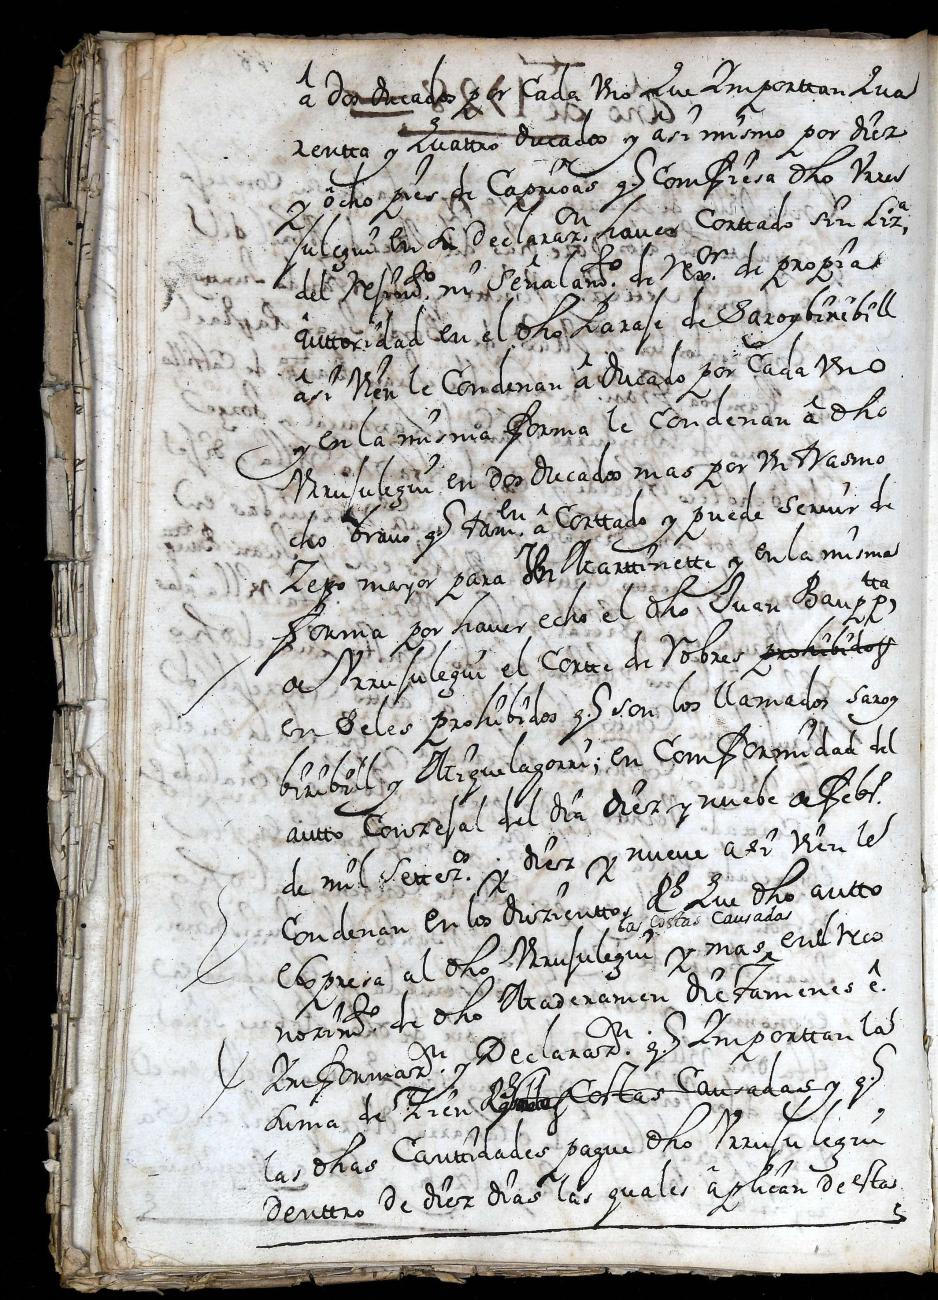 â dos ducados por Cada Vno que Ymporttan Qua
rentta y Quattro ducados y asi mismo por diez
y ôcho pies de Capriôas q.e Comfiesa dho Vrru
sulegui en su Declaraz.on haver Corttado sin Liz.a
del Rejim.to ni Señalam.to de Rex.or de propria
âuttoridad en el dho Paraje de Saroybiribill
âsi Vien le Condenan â ducado por Cada Vno
y en la misma forma le Condenan â dho
Vrrusulegui en dos ducados mas por Vn trasmo
cho brauo q.e tam.en â Corttado y puede seruir de
Zepo mayor para Vn Marttinette y en la misma
forma por haver echo el dho Juan Baup.tta
de Vrrusulegui el Cortte de Robres prohibidos
en Seles prohibidos q.e son los llamados saroy
biribill y Miguelagorri; en Comformidad del
autto Conzejal del dia diez y nuebe de Feb.o
de mil settez.os y diez y nueve asi Vien le
Condenan en los duzienttos R.s Que dho autto
las Costas Causadas
eSpresa al dho Vrrusulegui y mas en el reco
nozim.to de dho Maderamen dictamenes ê
Ymformaz.on y Declaraz.on q.e Ymporttan la
suma de Zien Costas Causadas y q.e
las dhas Canttidades pague dho Vrrusulegui
denttro de diez dias las quales âplican de estas